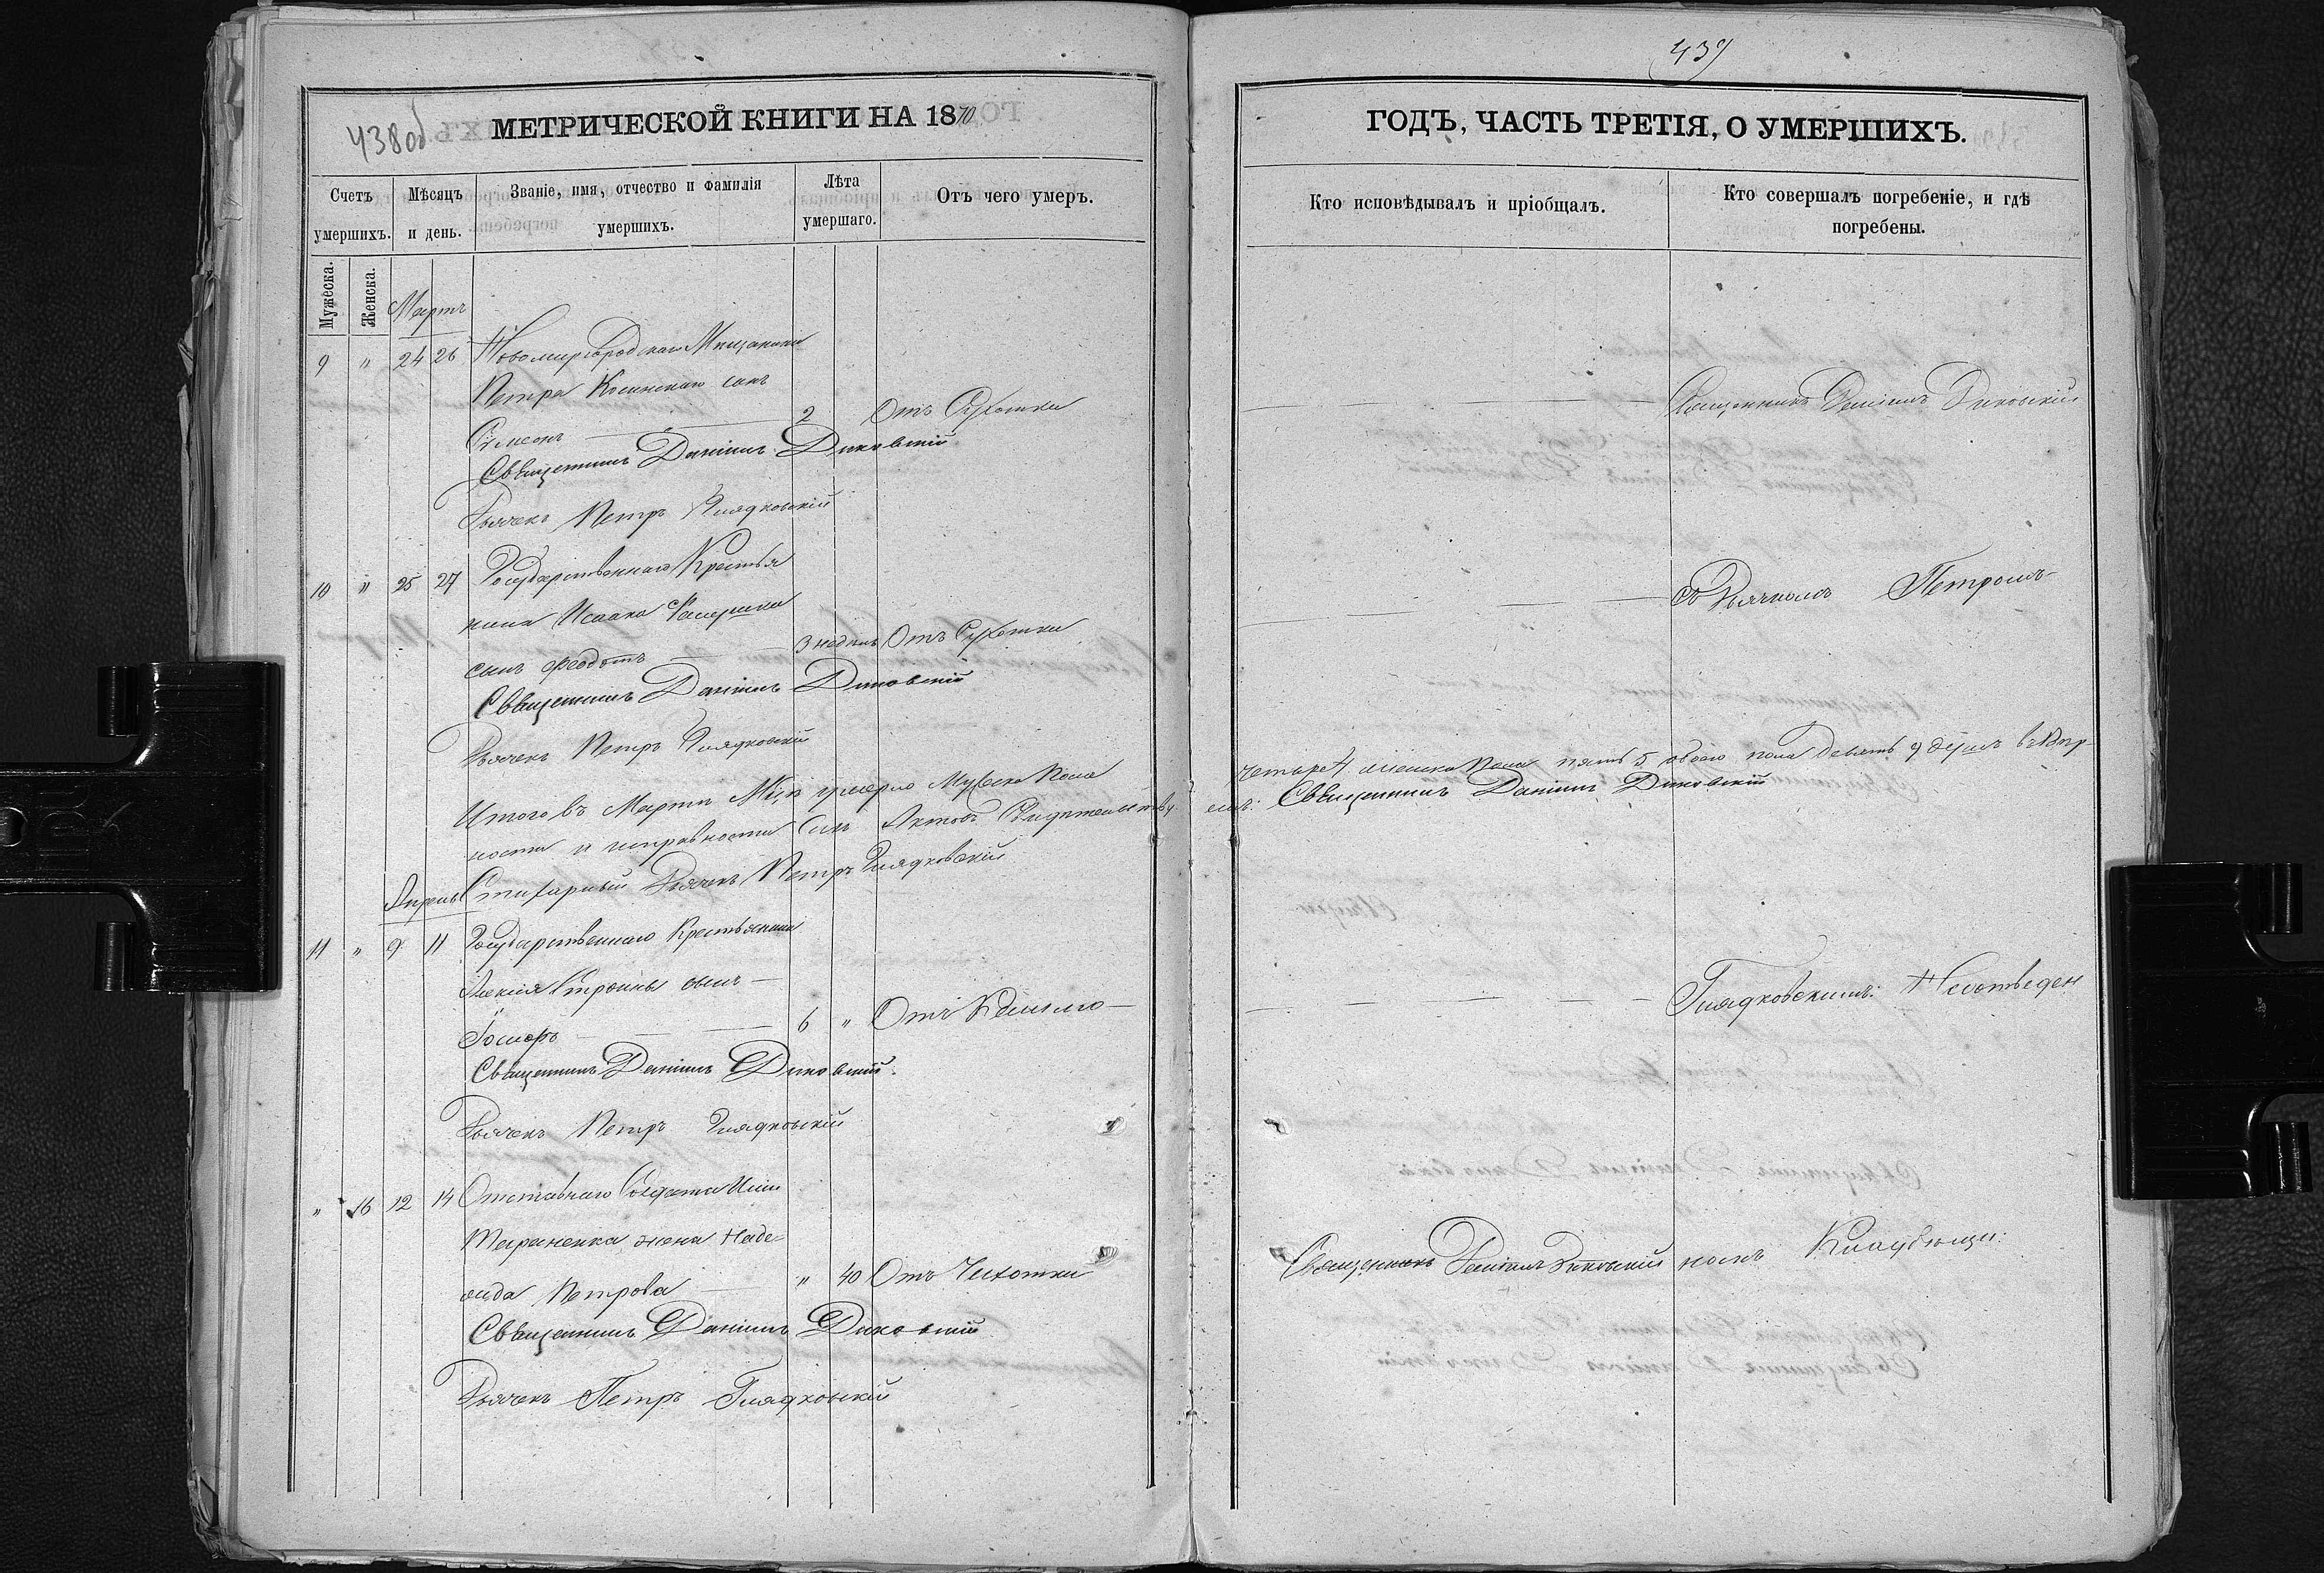 438об
МЕТРИЧЕСКОЙ КНИГИ НА 1870
Счетъ умершихъ.
Мѣсяцъ и день.
Званіе, имя, отчество и фамилія умершихъ.
Лѣта умершаго.
Отъ чего умеръ.
Мужеска.
Женска.
Мартъ
9 " 24 26 Новомиргородскаго Мѣщанина
Петра Косинскаго сынъ
Симеонъ 2 Отъ Сухотки
Священникъ Даніилъ Диковскій
Дьячекъ Петръ Глядковскій
10 " 25 27 Государственнаго Крестья
нина Исаака
сынъ Феодотъ 3 недѣль Отъ Сухотки
Священникъ Даніилъ Диковскій
Дьячекъ Петръ Глядковскій
Итого въ Мартѣ Мцѣ умерло Мужеска Пола
ности и исправности сихъ Актовъ Свидѣтельству
Стихарный Дьячекъ Петръ Глядковскій
Апрель
11 " 9 11 Государственнаго Крестьянина
Алексія сынъ
6 " Отъ
Священникъ Даніилъ Диковскій.
Дьячекъ Петръ Глядковскій
" 16 12 14 Отставнаго Солдата
Тараненка жена Наде-
жда Петрова " 40 Отъ Чихотки
Священникъ Даніилъ Диковскій
Дьячекъ Петръ Глядковскій
439
ГОДЪ, ЧАСТЬ ТРЕТІЯ, О УМЕРШИХЪ.
Кто исповѣдывалъ и пріобщалъ.
Кто совершалъ погребеніе, и гдѣ погребены.
Священникъ Даніилъ Диковскій
съ Дьячкомъ Петромъ
четыре 4 женска Пола пять 5 обоего пола девять 9 душъ въ Вѣр-
емъ: Священникъ Даніилъ Диковскій
Глядковскимъ: На отведен
Священникъ Даніилъ Диковскій номъ Кладбищи: